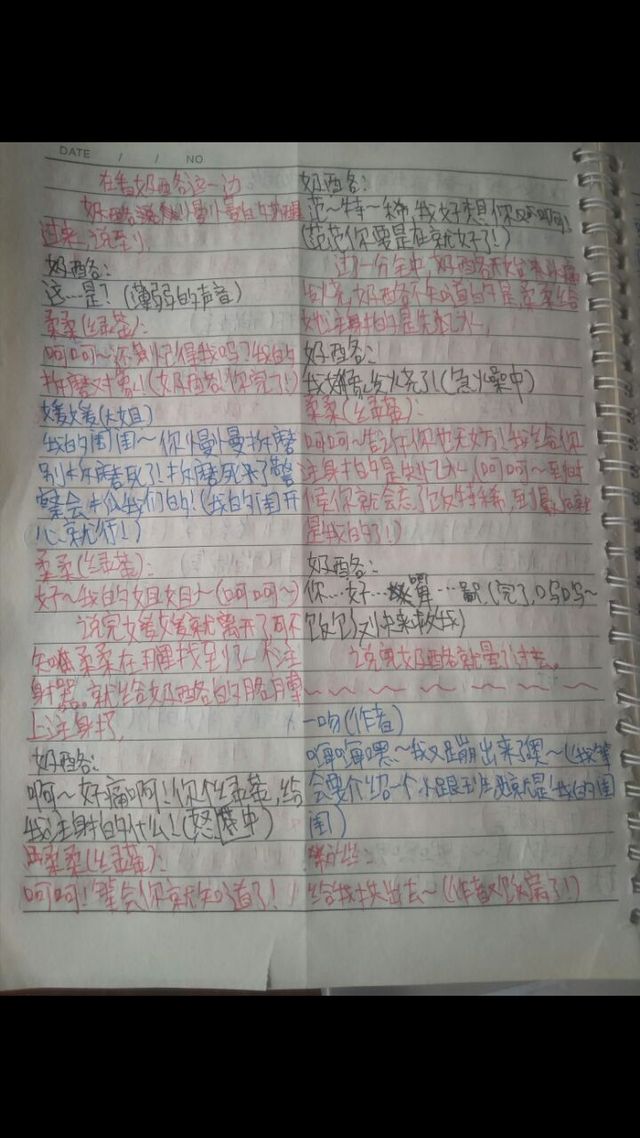 DATE / / NO
在看奶酪各这一边
奶酪各慢慢的的醒
过来，说到，
奶酪各：
这…是？(薄弱的声音)
柔柔(绿茶)：
呵呵～你别记得我吗？我的
折磨对象！(奶酪各！你完了！)
媛媛(大姐)
我的囡囡～你慢慢折磨
别折磨死了！折磨死来了警
察会抓我们的！(我的囡开
心就行！)
柔柔(绿茶)：
好～我的姐姐～(呵呵～)
说完媛媛就离开了，可不
知柔柔在哪里找到了一个注
身器。就给奶酪各的胳膊
上注身了，
奶酪各：
啊～好痛啊！你个绿茶，给
我注身的什么！(怒中)
柔柔(绿茶)：
呵呵！等会你就知道了！
奶酪各：
范～特～稀，我好想你啊！
(范范你要是在就好了！)
过一分钟，奶酪各开始
发烧，奶酪各不知道的是，柔柔给
她注身的是失忆水，
奶酪各：
我好发烧了！(急燥中)
柔柔(绿茶)：
呵呵～告诉你也无妨！我给你
注身的是失忆水(呵呵～到时
候你就会忘了饭特稀，到最后就
是我的了！)
奶酪各：
你…好…(完了，呜呜～
饭饭快来救我)
说完奶酪各就晕了过去。
一吻(作者)
嘿～我又蹦出来了嘿～(我等
会要介绍一个小跟班就是我的囡
囡)
粉丝：
给我拱出去～(作者又欧寓了！)